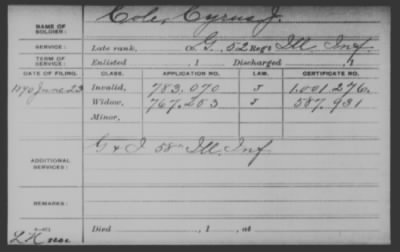 NAME OF SOLDIER: Cole, Cyrus J.
SERVICE: Late rank, G. 52 Reg't Ill. Inf.
TERM OF SERVICE: Enlisted , 1 Discharged , 1
DATE OF FILING. CLASS. APPLICATION NO. LAW. CERTIFICATE NO.
1890 June 23 Invalid, 783.070 J 1.001.276.
Widow, 767.203 J 587.931
Minor,
ADDITIONAL SERVICES: G & I 58" Ill. Inf.
REMARKS:
Died , 1 , at